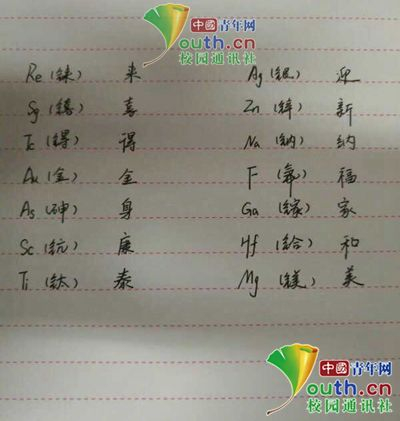 中國青年网
Youth.cn
校园通讯社
Re (铼) 来 Ag (银) 迎
Sg (𨭎) 喜 Zn (锌) 新
Tc (锝) 得 Na (钠) 纳
Au (金) 金 F (氟) 福
As (砷) 身 Ga (镓) 家
Sc (钪) 康 Hf (铪) 和
Ti (钛) 泰 Mg (镁) 美
中國青年网
Youth.cn
校园通讯社